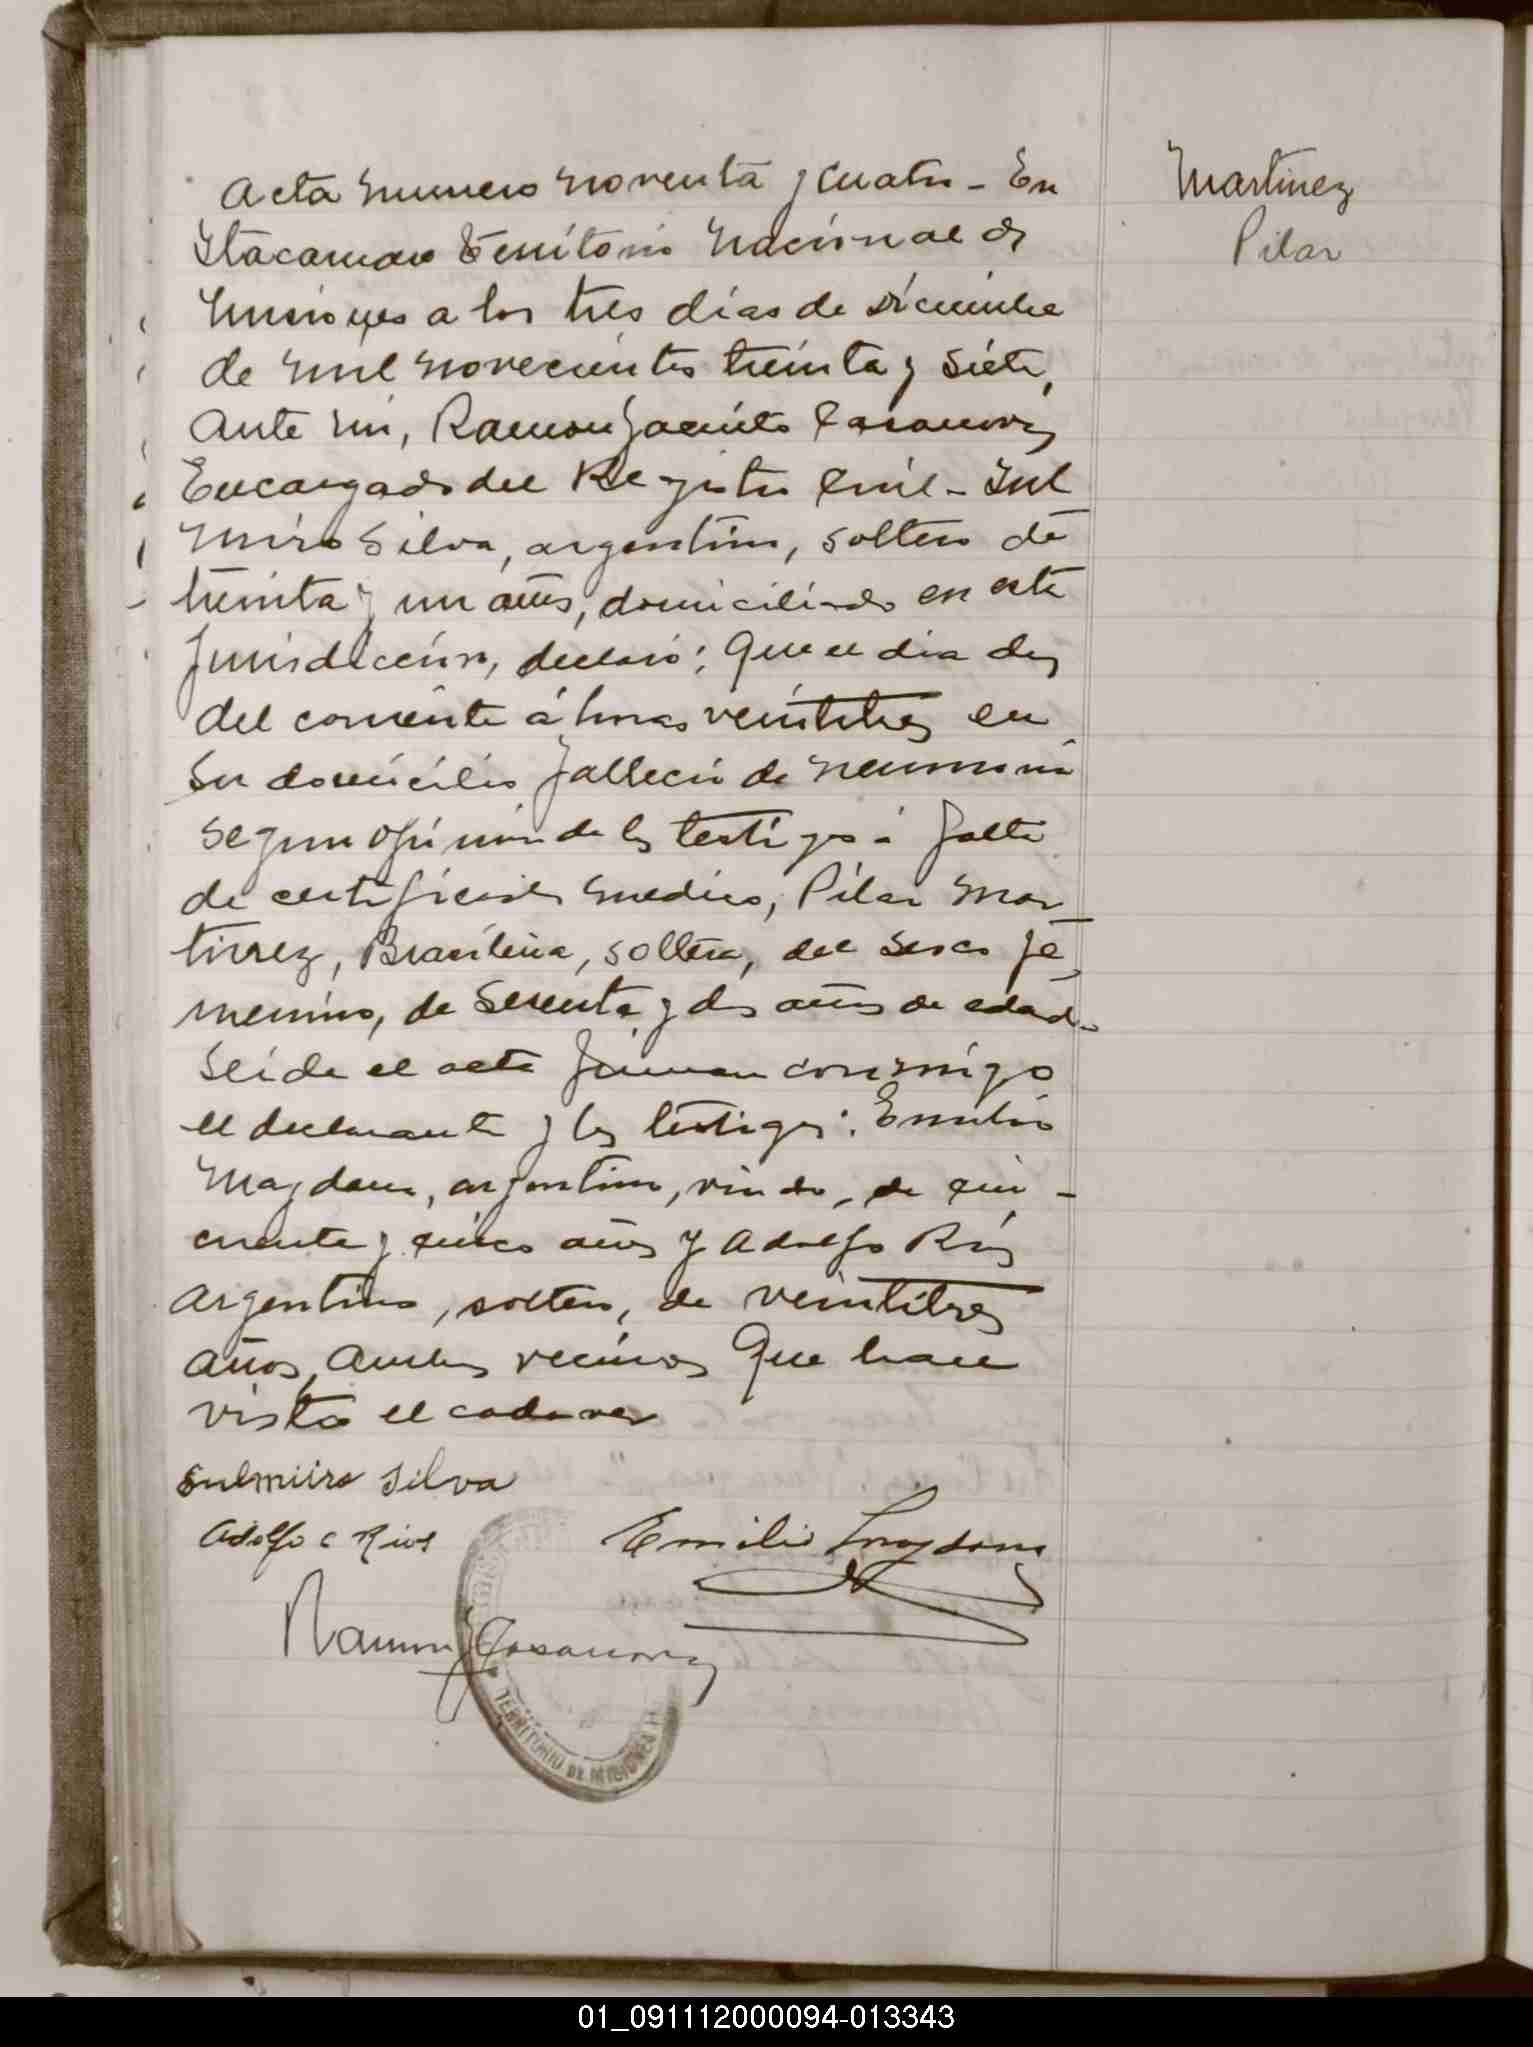 Acta numero noventa y cuatro - En
Itacaruare Territorio Nacional de
Misiones a los tres dias de Diciembre
de mil novecientos treinta y siete,
ante mi, Ramon Jacinto Casanova,
Encargado del Registro Civil - Sul
miro Silva, argentino, soltero de
treinta y un años, domiciliado en esta
Jurisdiccion, declaró: Que el dia dos
del corriente á horas veintitres en
su domicilio falleció de neumonia
segun opinion de los testigos á falta
de certificado medico, Pilar Mar-
tinez, Brasileña, soltera, del sexo fe-
menino, de sesenta y dos años de edad.
Leida el acta firman conmigo
el declarante y los testigos: Emilio
Magdana, argentino, viudo, de cin-
cuenta y cinco años y Adolfo Rios
argentino, soltero, de veintitres
años, ambos vecinos que han
visto el cadaver
Sulmiiro Silva
Adolfo C Rios
Emilio Magdana
Ramon J Casanova
TERRITORIO DE MISIONES
Martinez
Pilar
01_091112000094-013343